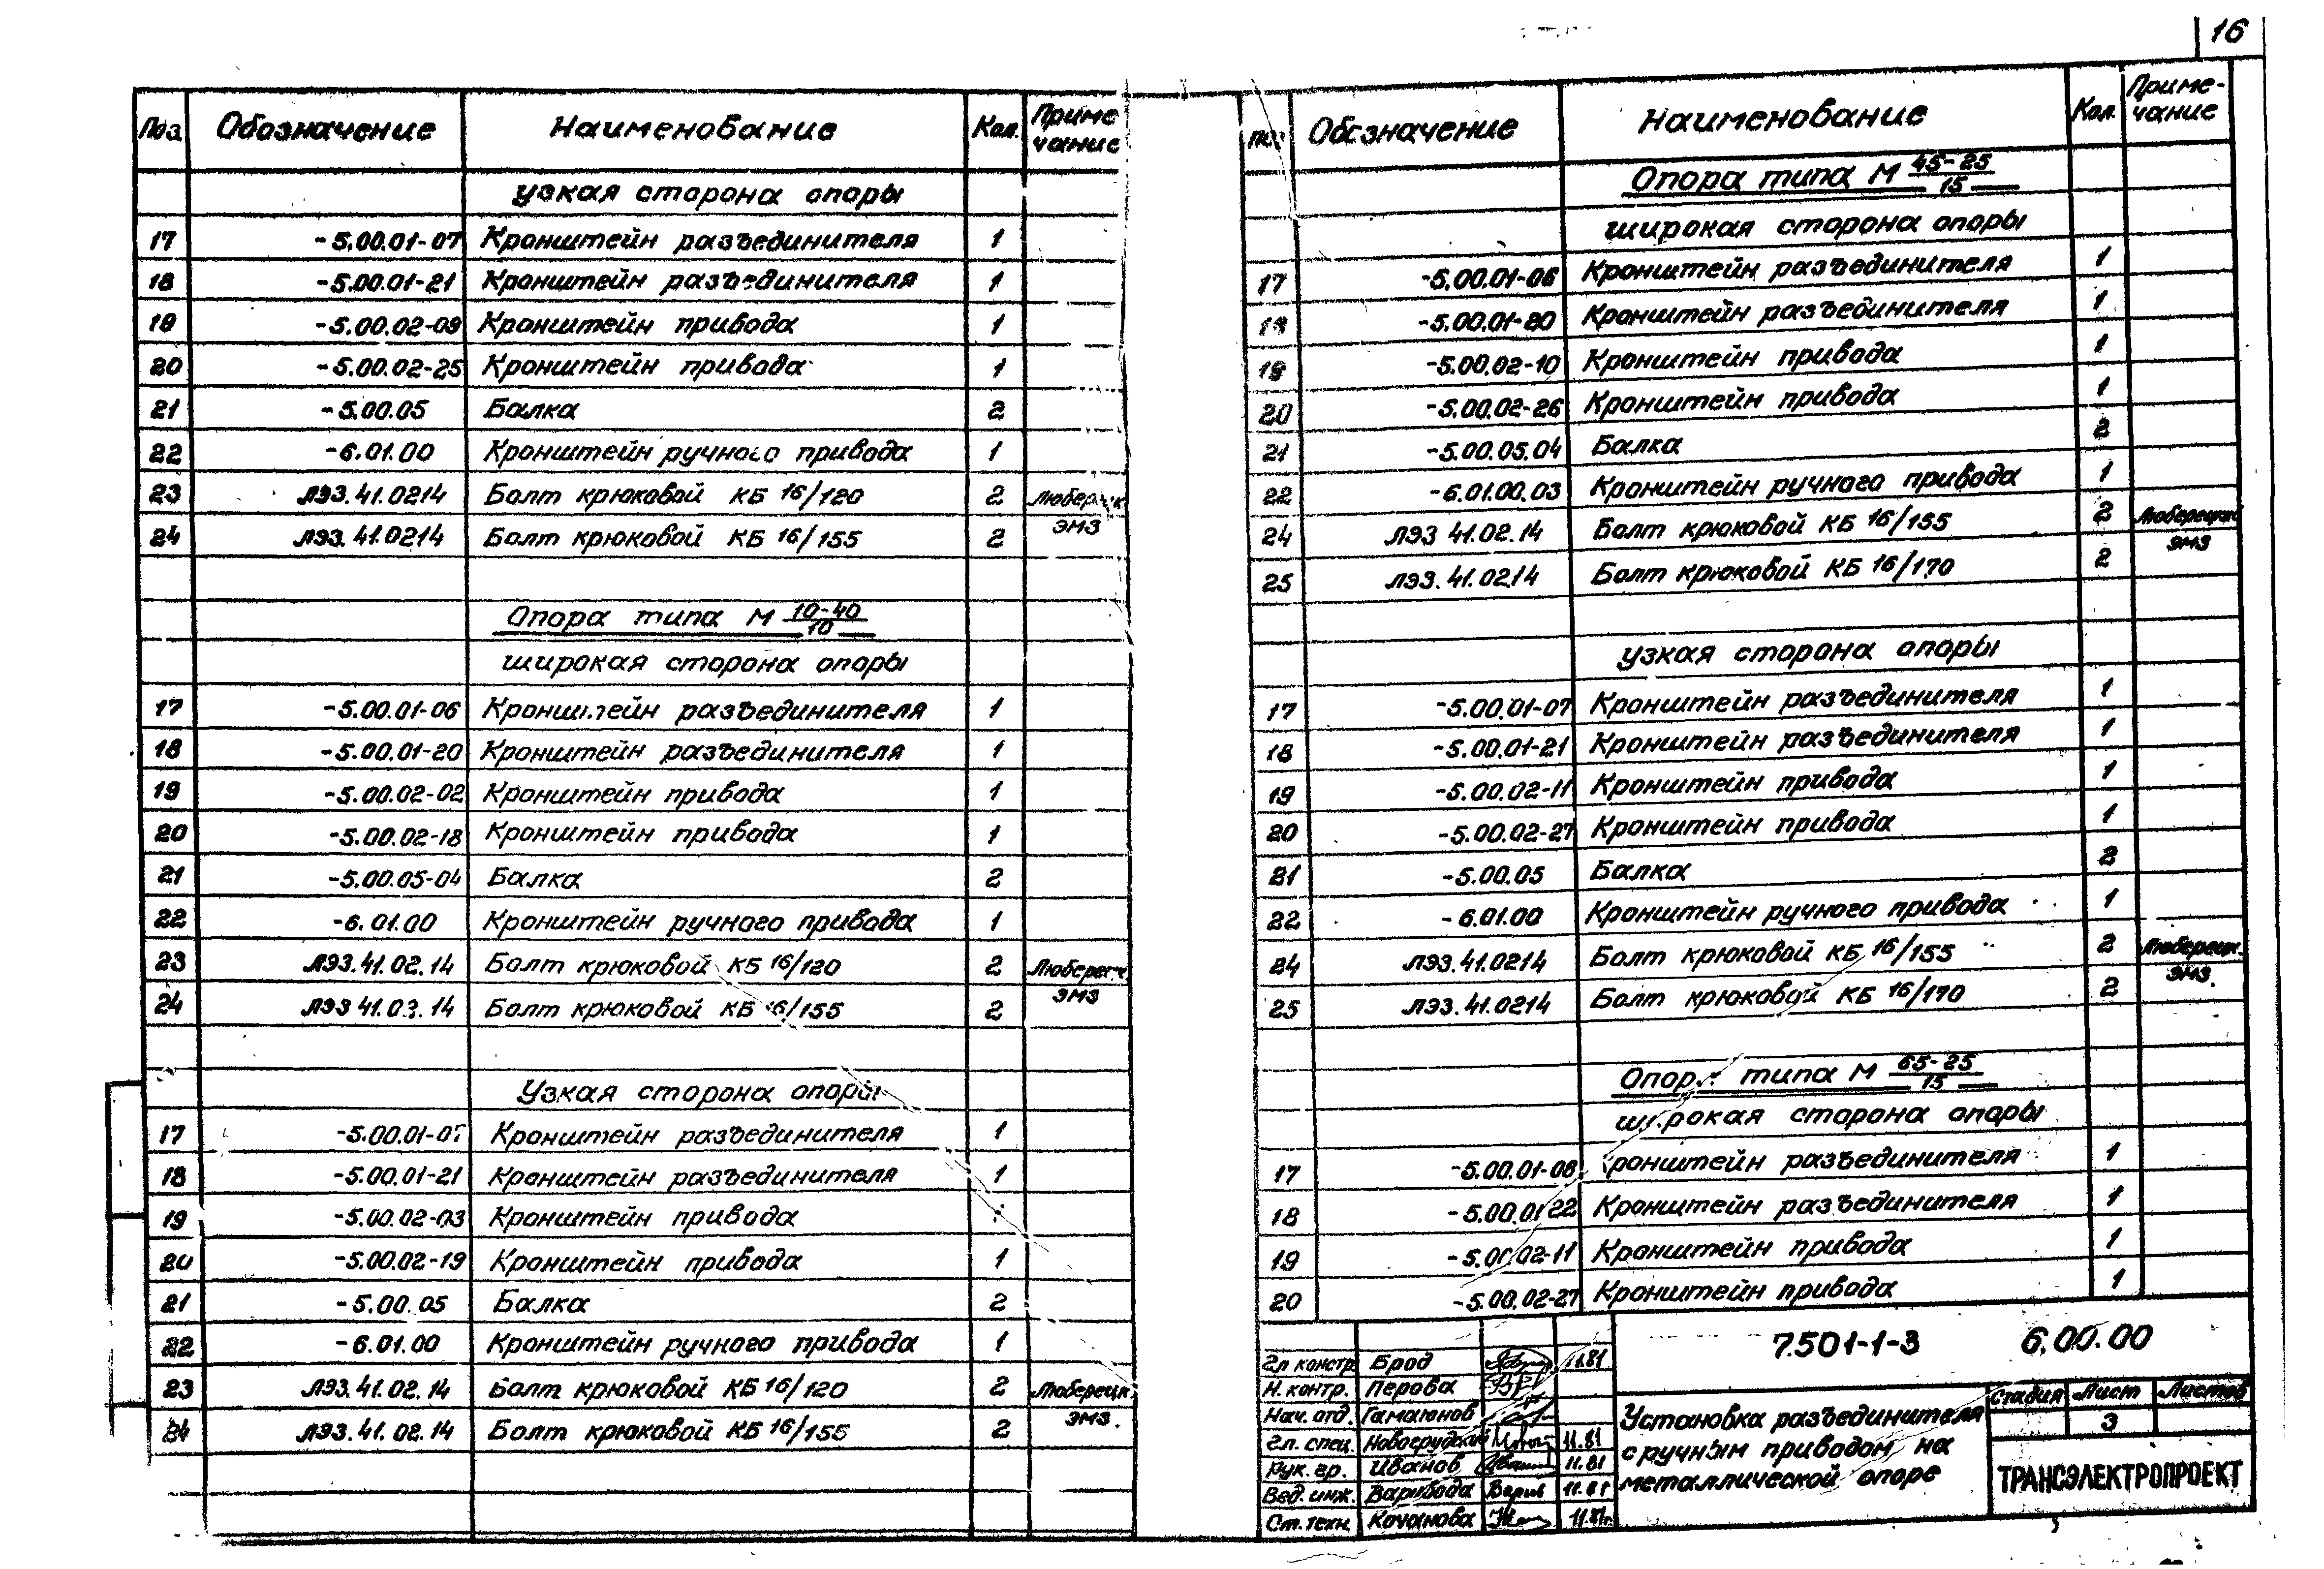 16
Поз. Обозначение Наименование Кол. Приме чание
узкая сторона опоры
17 -5.00.01-07 Кронштейн разъединителя 1
18 -5.00.01-21 Кронштейн разъединителя 1
19 -5.00.02-09 Кронштейн привода 1
20 -5.00.02-25 Кронштейн привода 1
21 -5.00.05 Балка 2
22 -6.01.00 Кронштейн ручного привода 1
23 ЛЭЗ.41.0214 Болт крюковой КБ 16/120 2
24 ЛЭЗ.41.0214 Болт крюковой КБ 16/155 2 ЭМЗ
Опора типа М 10-40/10
широкая сторона опоры
17 -5.00.01-06 Кронштейн разъединителя 1
18 -5.00.01-20 Кронштейн разъединителя 1
19 -5.00.02-02 Кронштейн привода 1
20 -5.00.02-18 Кронштейн привода 1
21 -5.00.05-04 Балка 2
22 -6.01.00 Кронштейн ручного привода 1
23 ЛЭЗ.41.02.14 Болт крюковой КБ 16/120 2 Люберецк
24 ЛЭЗ 41.02.14 Болт крюковой КБ 16/155 2 ЭМЗ
Узкая сторона опоры
17 -5.00.01-07 Кронштейн разъединителя 1
18 -5.00.01-21 Кронштейн разъединителя 1
19 -5.00.02-03 Кронштейн привода
20 -5.00.02-19 Кронштейн привода 1
21 -5.00.05 Балка 2
22 -6.01.00 Кронштейн ручного привода 1
23 ЛЭЗ.41.02.14 Болт крюковой КБ 16/120 2 Люберецк.
24 ЛЭЗ.41.02.14 Болт крюковой КБ 16/155 2 ЭМЗ.
поз Обозначение Наименование Кол. Приме- чание
Опора типа М 45-25/15
широкая сторона опоры
17 -5.00.01-06 Кронштейн разъединителя 1
18 -5.00.01-20 Кронштейн разъединителя 1
19 -5.00.02-10 Кронштейн привода 1
20 -5.00.02-26 Кронштейн привода 1
21 -5.00.05.04 Балка 2
22 -6.01.00.03 Кронштейн ручного привода 1
24 ЛЭЗ 41.02.14 Болт крюковой КБ 16/155 2 Люберецкий
25 ЛЭЗ.41.0214 Болт крюковой КБ 16/170 2 ЭМЗ
узкая сторона опоры
17 -5.00.01-07 Кронштейн разъединителя 1
18 -5.00.01-21 Кронштейн разъединителя 1
19 -5.00.02-11 Кронштейн привода 1
20 -5.00.02-27 Кронштейн привода 1
21 -5.00.05 Балка 2
22 -6.01.00 Кронштейн ручного привода 1
24 ЛЭЗ.41.0214 Болт крюковой КБ 16/155 2 Люберецк.
25 ЛЭЗ.41.0214 Болт крюковой КБ 16/170 2 ЭМЗ.
Опора типа М 65-25/15
широкая сторона опоры
17 -5.00.01-08 Кронштейн разъединителя 1
18 -5.00.01 22 Кронштейн разъединителя 1
19 -5.00.02-11 Кронштейн привода 1
20 -5.00.02-27 Кронштейн привода 1
7.501-1-3 6.00.00
Гл констр. Брод 11.81
Н. контр. Перова
Нач. отд. Гамаюнов
Гл. спец. Новогрудский 11.81
Рук. гр. Иванов 11.81
Вед. инж. Варивода 11.81
Ст. техн. Качанова 11.81г.
Установка разъединителя
с ручным приводом на
металлической опоре
Стадия Лист Листов
3
ТРАНСЭЛЕКТРОПРОЕКТ